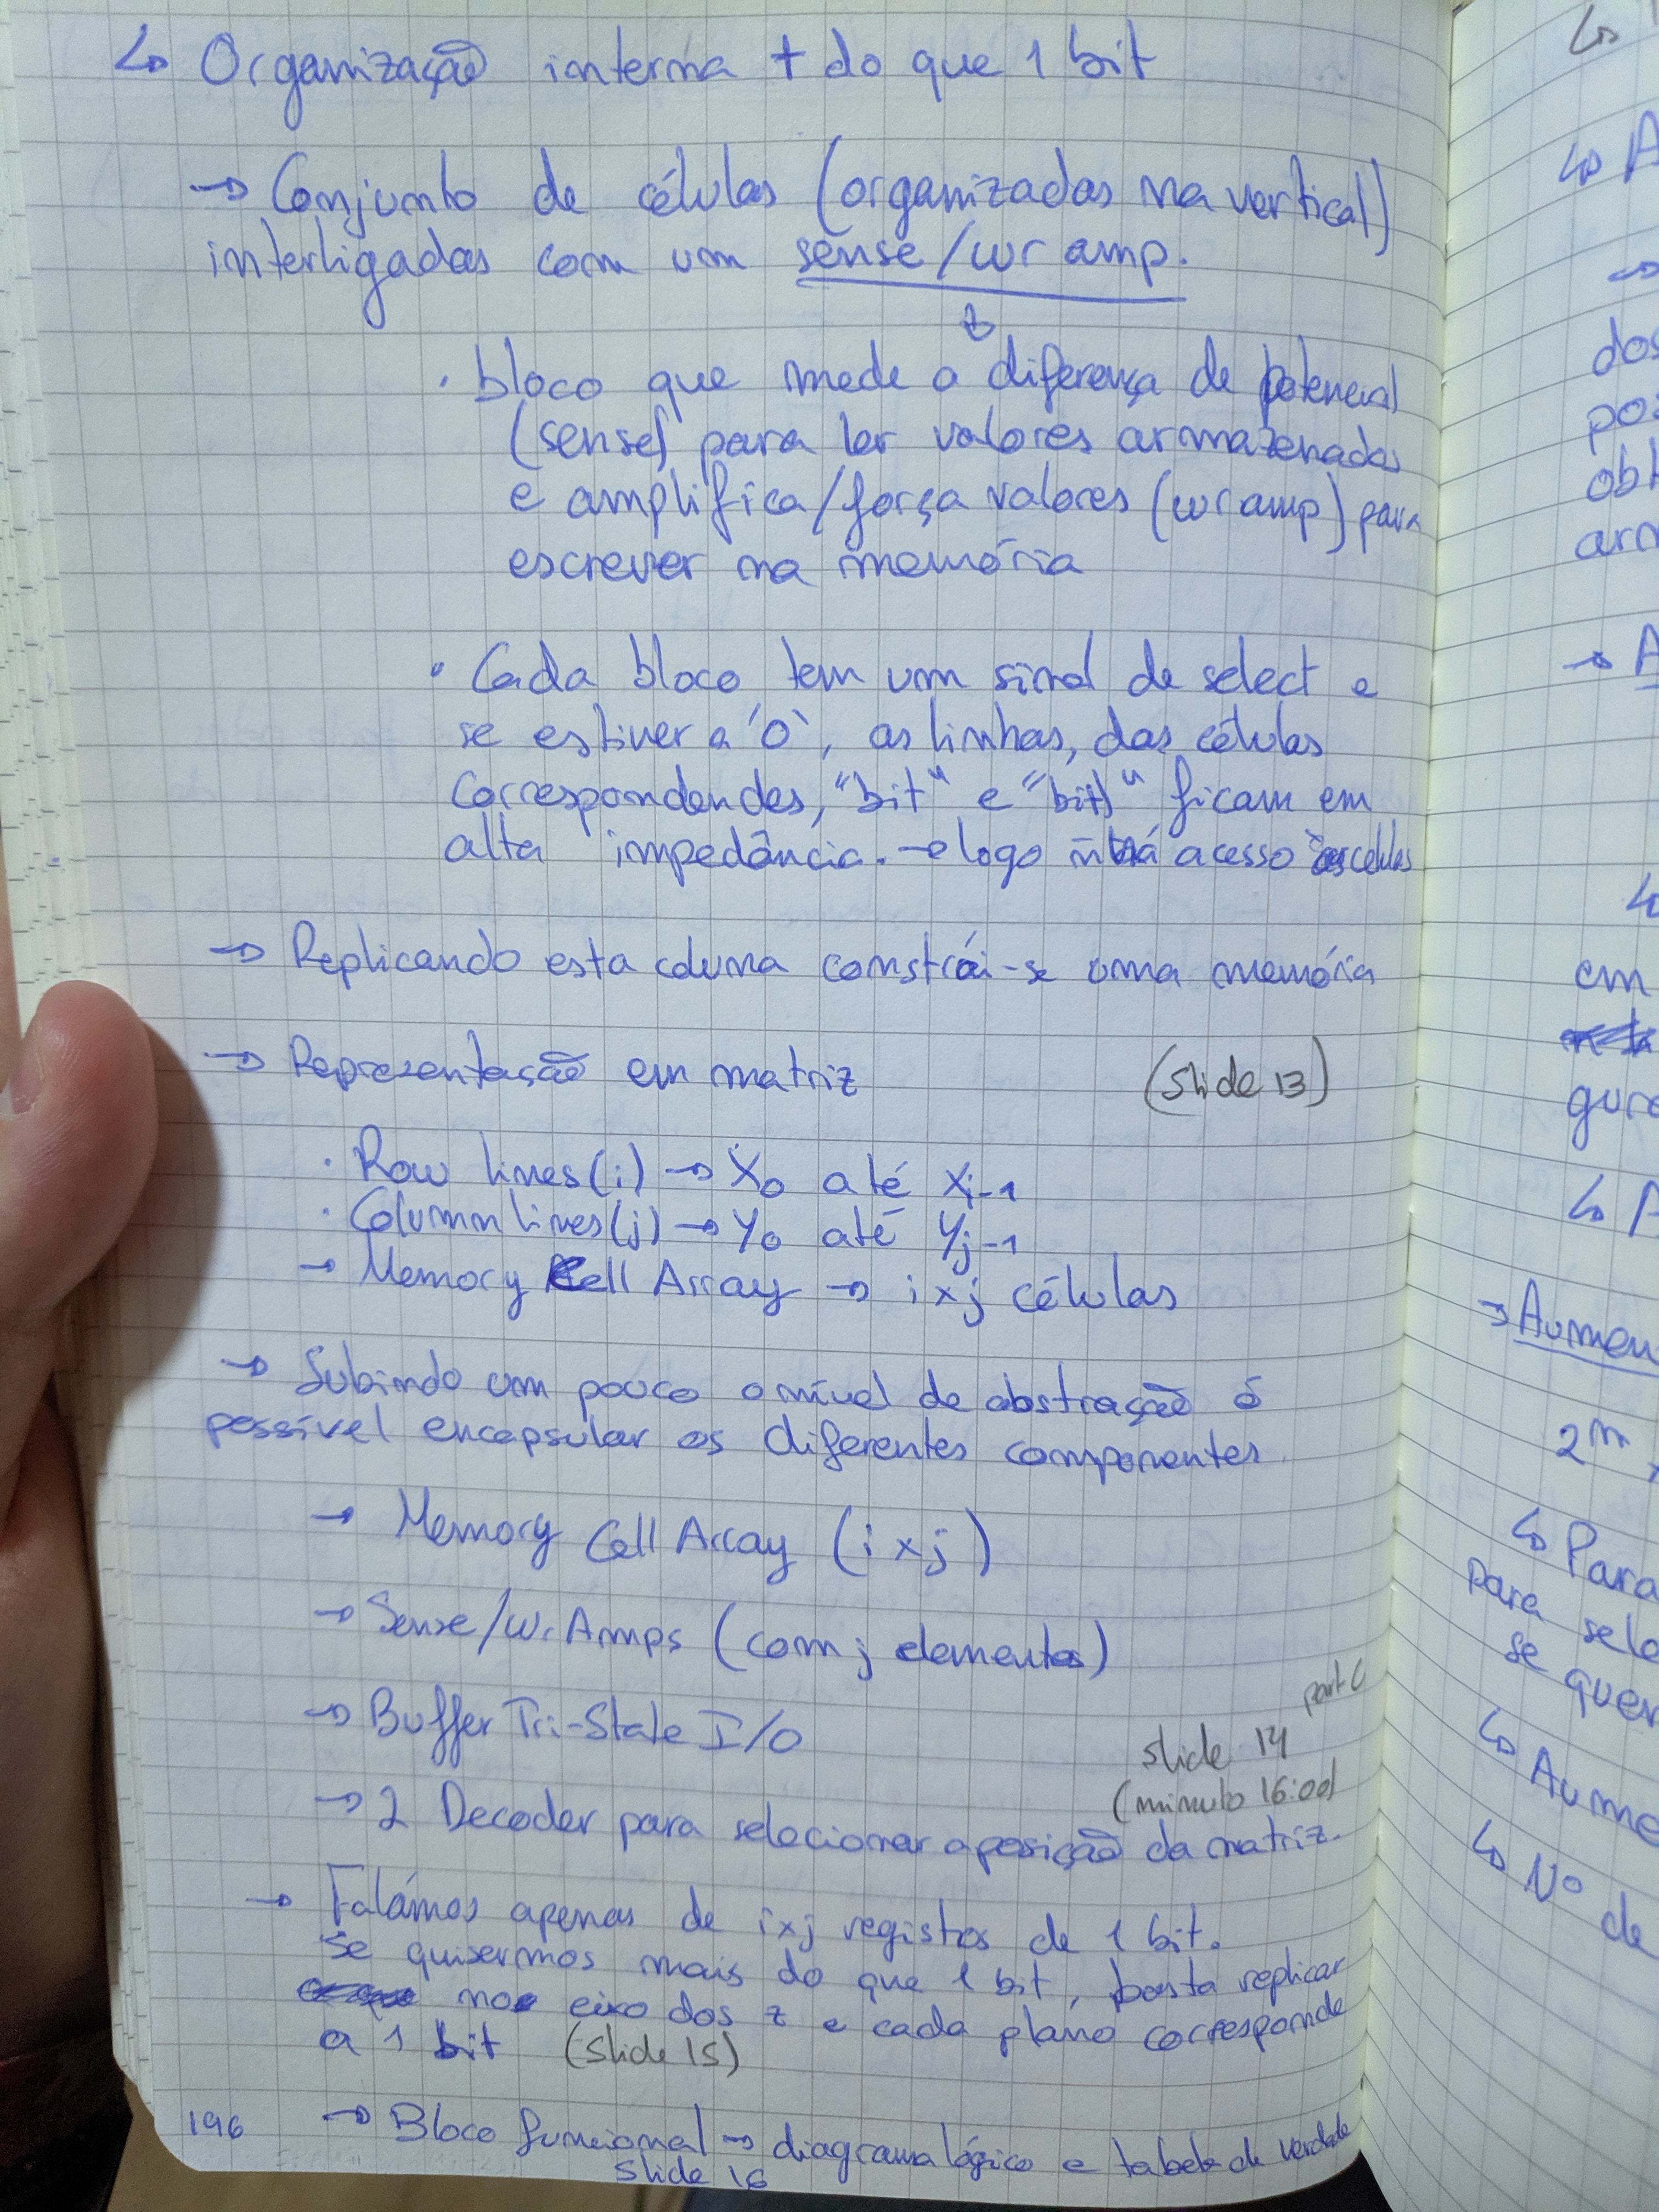 ↳ Organização interna + do que 1 bit
→ Conjunto de células (organizadas na vertical)
interligadas com um sense/wr amp.
↳
· bloco que mede a diferença de potencial
(sense) para ler valores armazenados
e amplifica/força valores (wr amp) para
escrever na memória
· Cada bloco tem um sinal de select e
se estiver a '0', as linhas, das células
correspondendes, "bit" e "bit\" ficam em
alta impedância. → logo ñ há acesso às células
→ Replicando esta coluna constrói-se uma memória
→ Representação em matriz (slide 13)
· Row lines(i) → X0 até Xi-1
· Column lines(j) → Y0 até Yj-1
→ Memory Cell Array → i×j células
→ Subindo um pouco o nível de abstração é
possível encapsular os diferentes componentes
→ Memory Cell Array (i×j)
→ Sense/Wr Amps (com j elementos)
→ Buffer Tri-State I/O
part C
slide 14
(minuto 16:00)
→ 2 Decoder para selecionar a posição da matriz.
→ Falámos apenas de i×j registos de 1 bit.
Se quisermos mais do que 1 bit, basta replicar
no eixo dos z e cada plano corresponde
a 1 bit (slide 15)
196 → Bloco funcional → diagrama lógico e tabela de verdade
slide 16
↳
↳ A
→
dos
→ A
↳
em
↳ A
→ Aumen
2^m ×
↳ Para
para sele
se quer
↳ Aume
↳ Nº
de